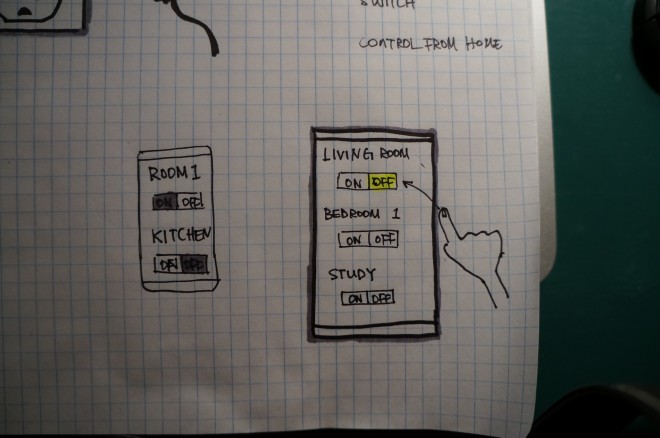 SWITCH
CONTROL FROM HOME
ROOM 1
ON OFF
KITCHEN
ON OFF
LIVING ROOM
ON OFF
BEDROOM 1
ON OFF
STUDY
ON OFF